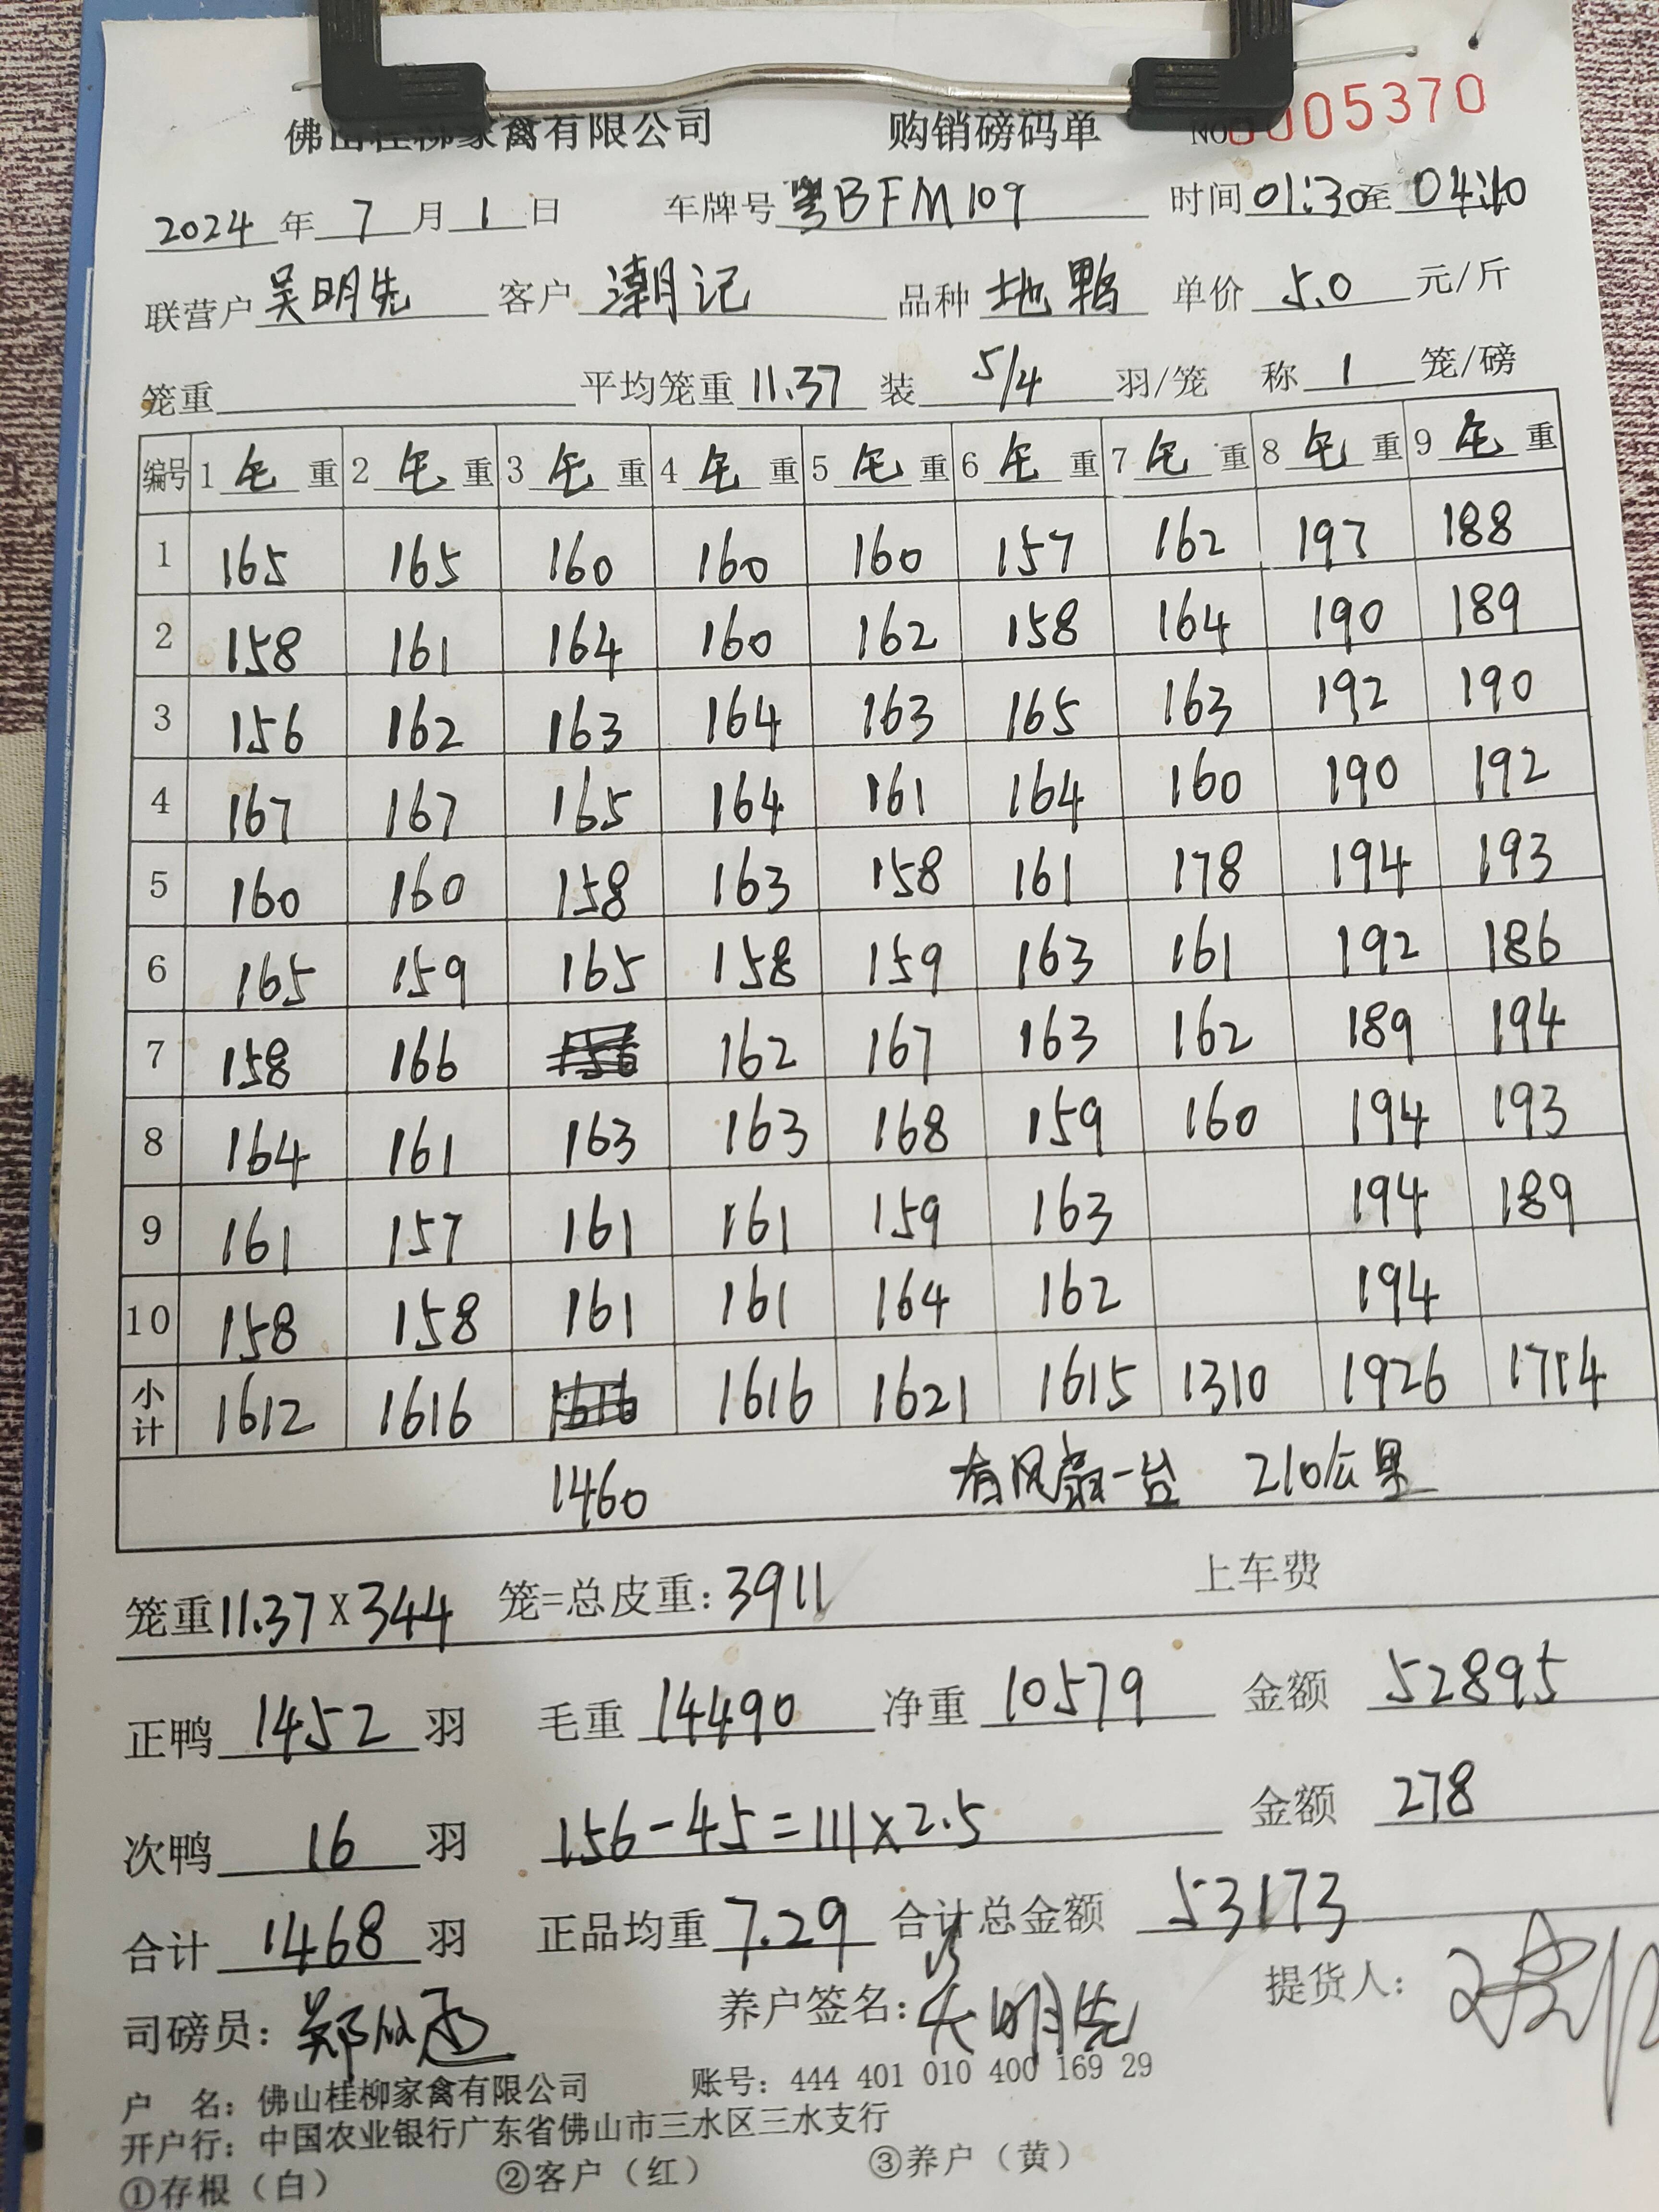 佛山桂柳家禽有限公司 购销磅码单 NO 0005370
2024年7月1日 车牌号 粤BFM109 时间 01:30至04:10
联营户 吴明先 客户 潮记 品种 地鸭 单价 5.0 元/斤
笼重 平均笼重 11.37 装 5/4 羽/笼 称 1 笼/磅
编号 1 毛 重 2 毛 重 3 毛 重 4 毛 重 5 毛 重 6 毛 重 7 毛 重 8 毛 重 9 毛 重
1 165 165 160 160 160 157 162 197 188
2 158 161 164 160 162 158 164 190 189
3 156 162 163 164 163 165 163 192 190
4 167 167 165 164 161 164 160 190 192
5 160 160 158 163 158 161 178 194 193
6 165 159 165 158 159 163 161 192 186
7 158 166 156 162 167 163 162 189 194
8 164 161 163 163 168 159 160 194 193
9 161 157 161 161 159 163 194 189
10 158 158 161 161 164 162 194
小计 1612 1616 1616 1616 1621 1615 1310 1926 1714
1460 有风扇一台 210公里
笼重 11.37 X 344 笼=总皮重: 3911 上车费
正鸭 1452 羽 毛重 14490 净重 10579 金额 52895
次鸭 16 羽 156-45=111×2.5 金额 278
合计 1468 羽 正品均重 7.29 合计总金额 53173
司磅员: 郑 养户签名: 吴明先 提货人:
户 名: 佛山桂柳家禽有限公司 账号: 444 401 010 400 169 29
开户行: 中国农业银行广东省佛山市三水区三水支行
①存根（白） ②客户（红） ③养户（黄）